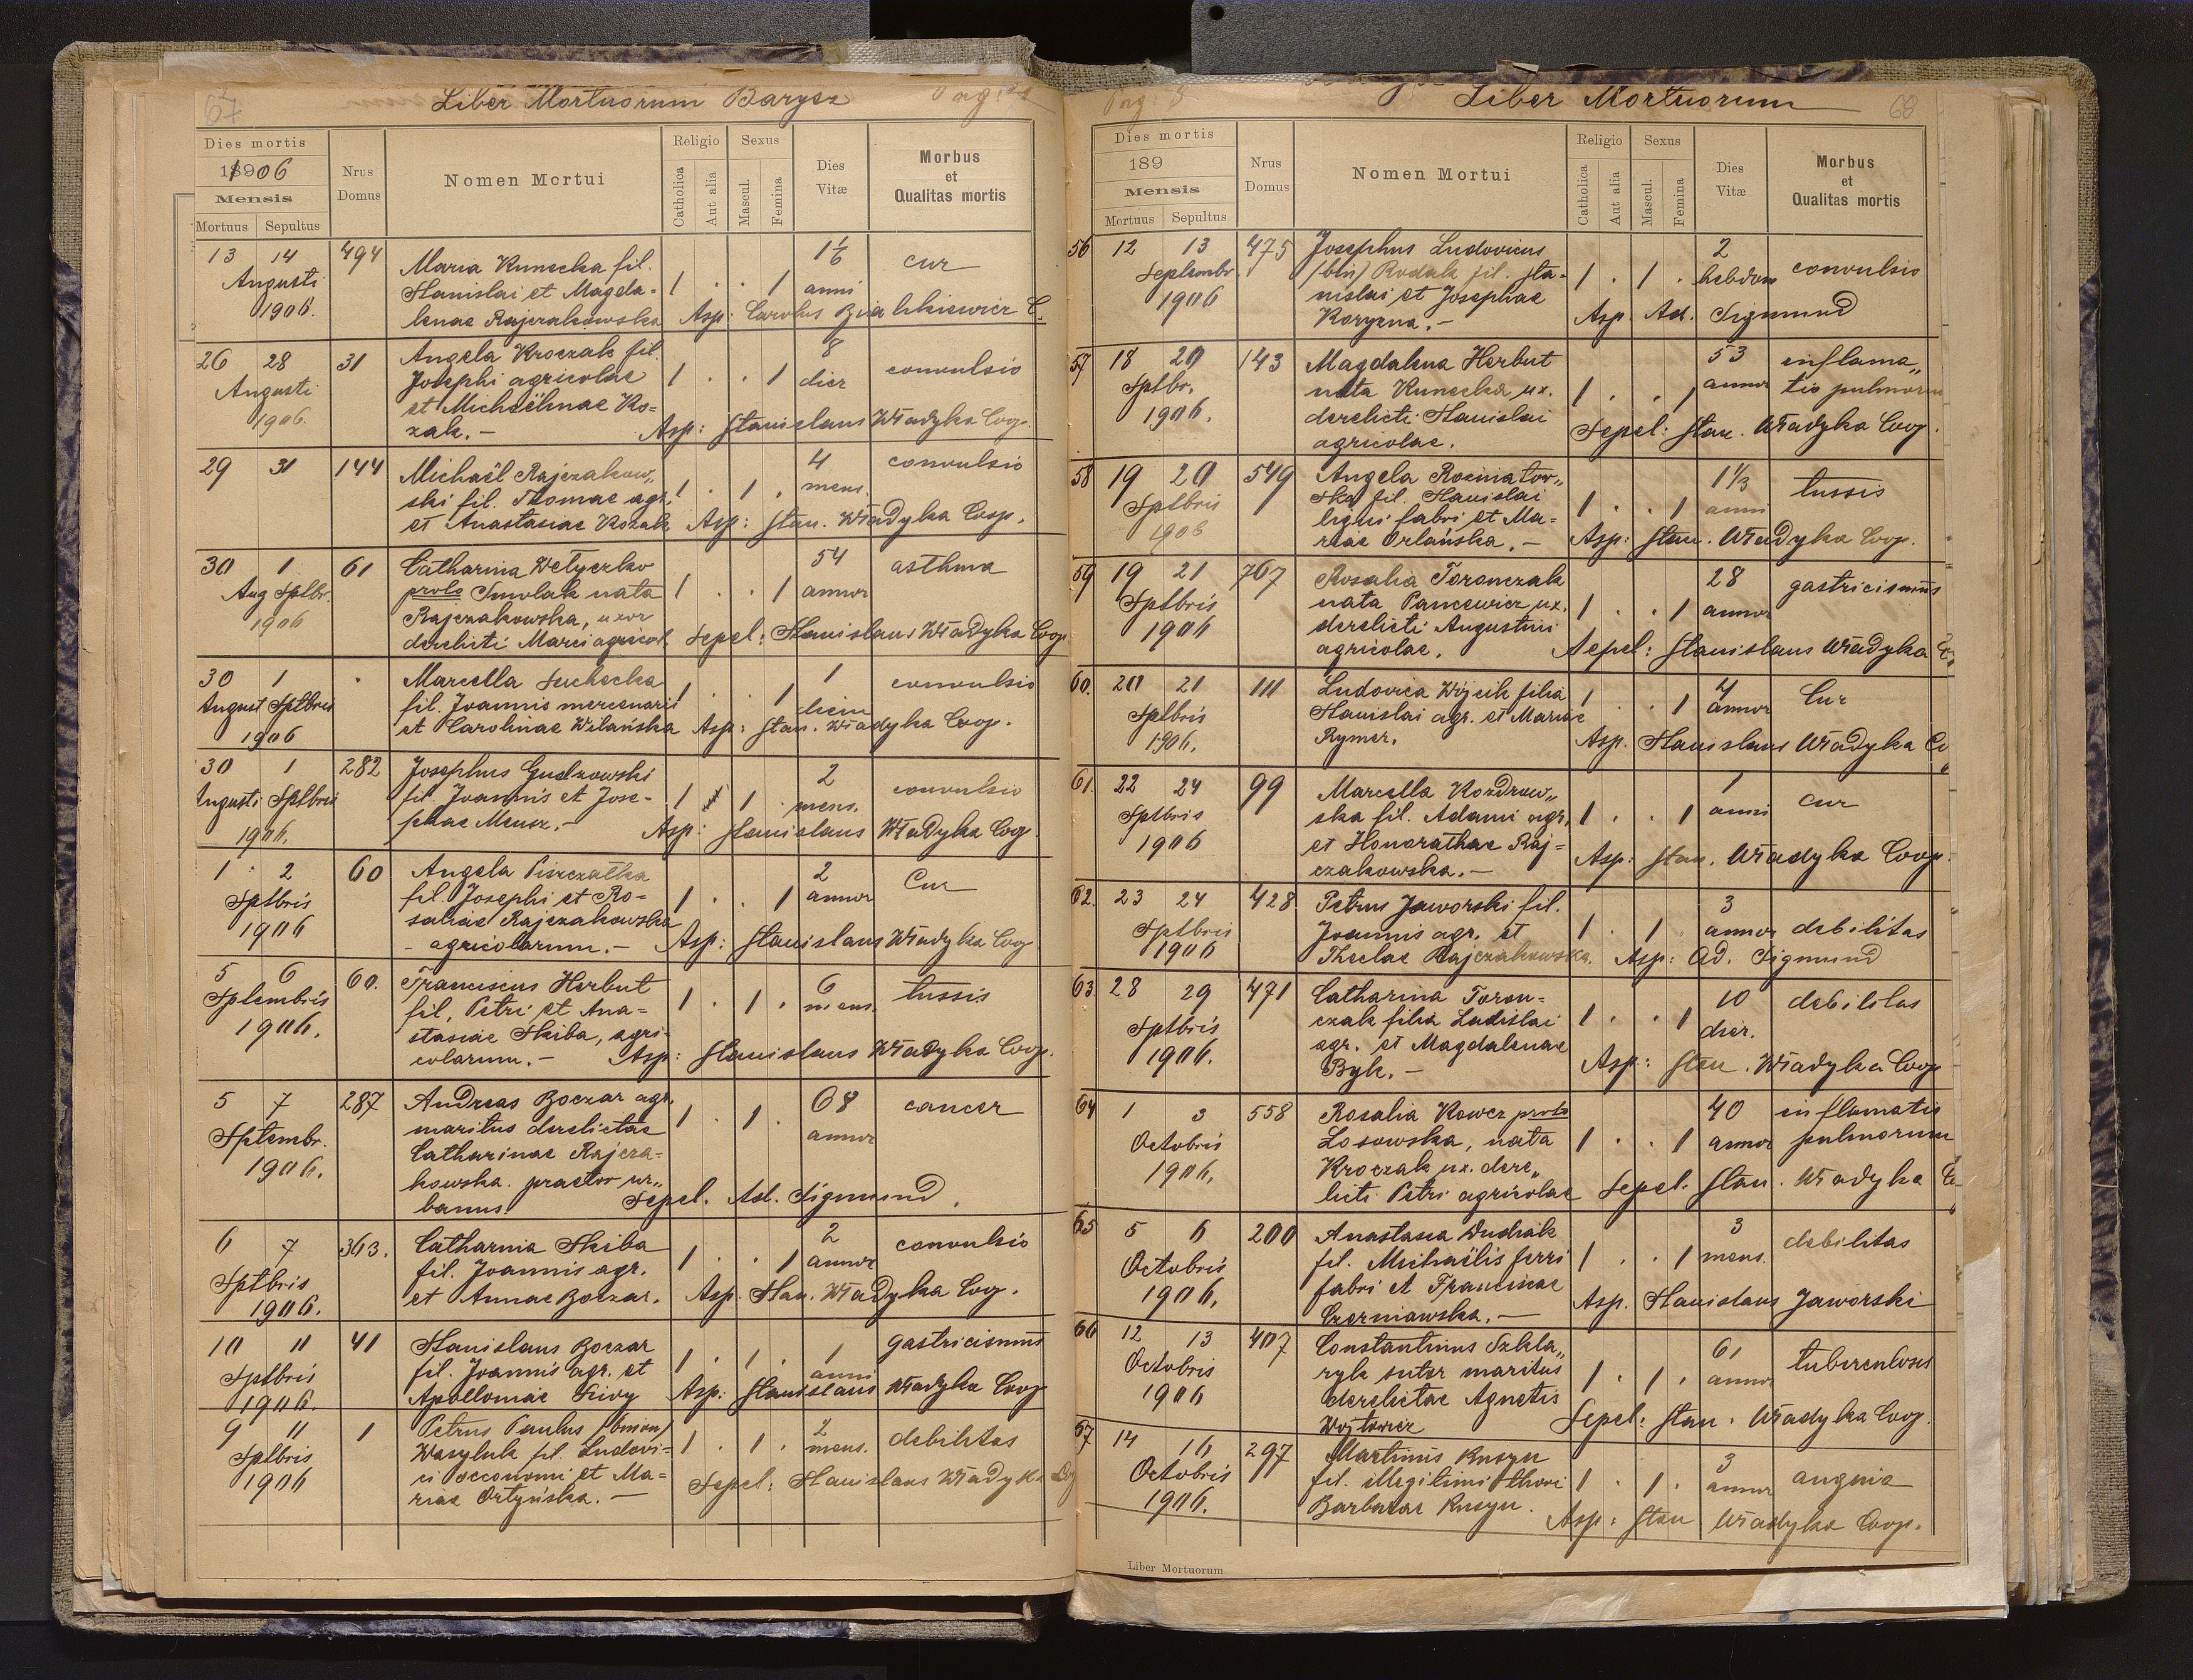 67
Liber Mortuorum Barysz
Dies mortis
1906
Mensis
Mortuus Sepultus
Nrus Domus
Nomen Mortui
Religio
Catholica
Aut alia
Sexus
Mascul.
Femina
Dies Vitæ
Morbus et Qualitas mortis
13 14 494 Maria Kunecka fil. 1 . . 1 1½ cur
Augusti Stanislai et Magda= anni
1906. lenae Rajczakowska Asp: Carolus
26 28 31 Angela Kroczak fil. 8 convulsio
Augusti Josephi agricolae 1 . . 1 dier
1906. et Michaëlinae Ko=
zak.- Asp: Stanislaus Władyka Coop.
29 31 144 Michaël Rajczakow„ 4 convulsio
ski fil. Thomae agr. 1 . 1 . mens.
et Anastasiae Kozak Asp: Stan. Władyka Coop.
30 1 61 Catharina Wetyczko 54 asthma
Aug Sptbr. proto Smolak nata 1 . . 1 annor
1906 Rajczakowska, uxor
derelicti Marci agricol. Sepel: Stanislaus Władyka Coop
30 1 . Marcella Suchecka 1 convulsio
August Sptbris fil. Joannis mercenarii 1 . . 1 diem
1906 et Carolinae Wilańska Asp: Stan. Władyka Coop.
30 1 282 Josephus Gudzowski 2 convulsio
Augusti Sptbris fil. Joannis et Jose- 1 1 . mens.
1906. phae Mensz.- Asp: Stanislaus Władyka Coop
1 . 2 60 Angela Piszczatka 2 Cur
Sptbris fil. Josephi et Ro- 1 . . 1 annor
1906 saliae Rajczakowska
- agricolarum.- Asp: Stanislaus Władyka Coop
5 6 60. Franciscus Herbut 6 tussis
Septembris fil. Petri et Ana= 1 . 1 . mens.
1906. stasiae Skiba, agri-
colarum.- Asp: Stanislaus Władyka Coop.
5 7 287 Andreas Boczar agr. 68 cancer
Septembr. maritus derelictae 1 . 1 . annor
1906. Catharinae Rajcza=
kowska. praetor ur„
banus. Sepel. Ad. Sigmund.
6 7 363. Catharina Skiba 2 convulsio
Sptbris fil. Joannis agr. 1 . . 1 annor
1906. et Annae Boczar. Asp. Stan. Władyka Coop.
10 11 41 Stanislaus Boczar 1 gastricismus
Sptbris fil. Joannis agr. et 1 . 1 . anni
1906. Apolloniae Asp: Stanislaus Władyka Coop
9 11 1 Petrus Paulus /binom/ 2 debilitas
Sptbris Wasyluk fil. Ludovi= 1 . 1 . mens.
1906 ci oeconomi et Ma=
riae Ortyńska.- Sepel: Stanislaus Władyka Coop
Pag. 3
Liber Mortuorum
68
Dies mortis
189
Mensis
Mortuus Sepultus
Nrus Domus
Nomen Mortui
Religio
Catholica
Aut alia
Sexus
Mascul.
Femina
Dies Vitæ
Morbus et Qualitas mortis
56 12 13 475 Josephus Ludovicus 2
Septembr. /bin/ Rodak fil. Sta= 1 . 1 . hebdom convulsio
1906 nislai et Josephae
Koryzna.- Asp. Ad. Sigmund
57 18 20 143 Magdalena Herbut 53 inflama„
Sptbr. nata Kunecka ux. 1 . . 1 annor tio pulmorum
1906. derelicti Stanislai
agricolae. Sepel: Stan. Władyka Coop.
58 19 20 549 Angela Rozniatow„ 1⅓ tussis
Sptbris ska fil. Stanislai 1 . . 1 anni
1906 ligni fabri et Ma=
riae Orlańska.- Asp: Stan. Władyka Coop.
59 19 21 767 Rosalia Toronczak 28 gastricismus
Sptbris nata Pancewicz ux. 1 . . 1 annor
1906 derelicti Augustini
agricolae. Sepel: Stanislaus Władyka
60. 20 21 111 Ludovica Wójcik filia 4 Cur
Sptbris Stanislai agr. et Mariae 1 . . 1 annor
1906. Rymer. Asp. Stanislaus Władyka Co
61. 22 24 99 Marcella Kozdrow„ 1 cur
Sptbris ska fil. Adami agr. 1 . . 1 anni
1906 et Honorathae Raj=
czakowska.- Asp: Stan. Władyka Coop.
62. 23 24 428 Petrus Jaworski fil. 3
Sptbris Joannis agr. et 1 . 1 annor debilitas
1906 Theclae Rajczakowska. Asp: Ad. Sigmund
63. 28 29 471 Catharina Toron= 10 debilitas
Sptbris czak filia Ladislai 1 . . 1 dier.
1906. agr. et Magdalenae
Byk.- Asp: Stan. Władyka Coop
64 1 3 558 Rosalia Kowcz proto 40 inflamatio
Octobris Losowska, nata 1 . . 1 annor pulmorum
1906. Kroczak ux. dere„
licti Petri agricolae Sepel. Stan. Władyka Co
65 5 6 200 Anastasia Dudiak 3 debilitas
Octobris fil. Michaëlis ferri 1 . . 1 mens.
1906. fabri et Franciscae
Czerniawska.- Asp. Stanislaus Jaworski
66 12 13 407 Constantinus Szkla„ 61 tuberculosis
Octobris ryk sutor maritus 1 . 1 . annor
1906 derelictae Agnetis
Wojtowicz Sepel: Stan. Władyka Coop.
67 14 16 297 Martinus Kusyn 3 angina
Octobris fil. illegitimi thori 1 . 1 . annor
1906. Barbarae Kusyn. Asp: Stan Władyka Coop.
Liber Mortuorum